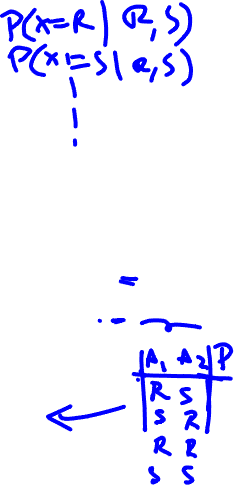 P(x=R | R,S)
P(x=S | R,S)
=
A₁ A₂ P
R S
S R
R R
S S